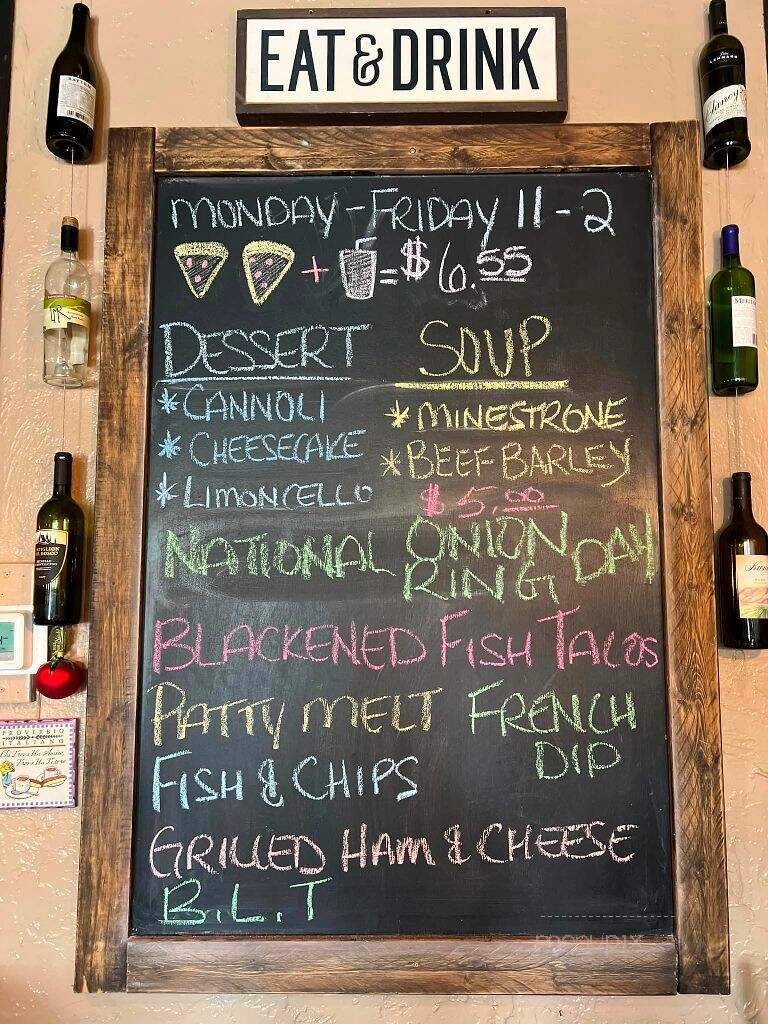 EAT & DRINK
MONDAY - FRIDAY 11 - 2
+ = $6.55
DESSERT
* CANNOLI
* CHEESECAKE
* LIMONCELLO
SOUP
* MINESTRONE
* BEEF BARLEY
$5.00
NATIONAL ONION RING DAY
BLACKENED FISH TACOS
PATTY MELT
FRENCH DIP
FISH & CHIPS
GRILLED HAM & CHEESE
B.L.T
PROVERBIO
ITALIANO